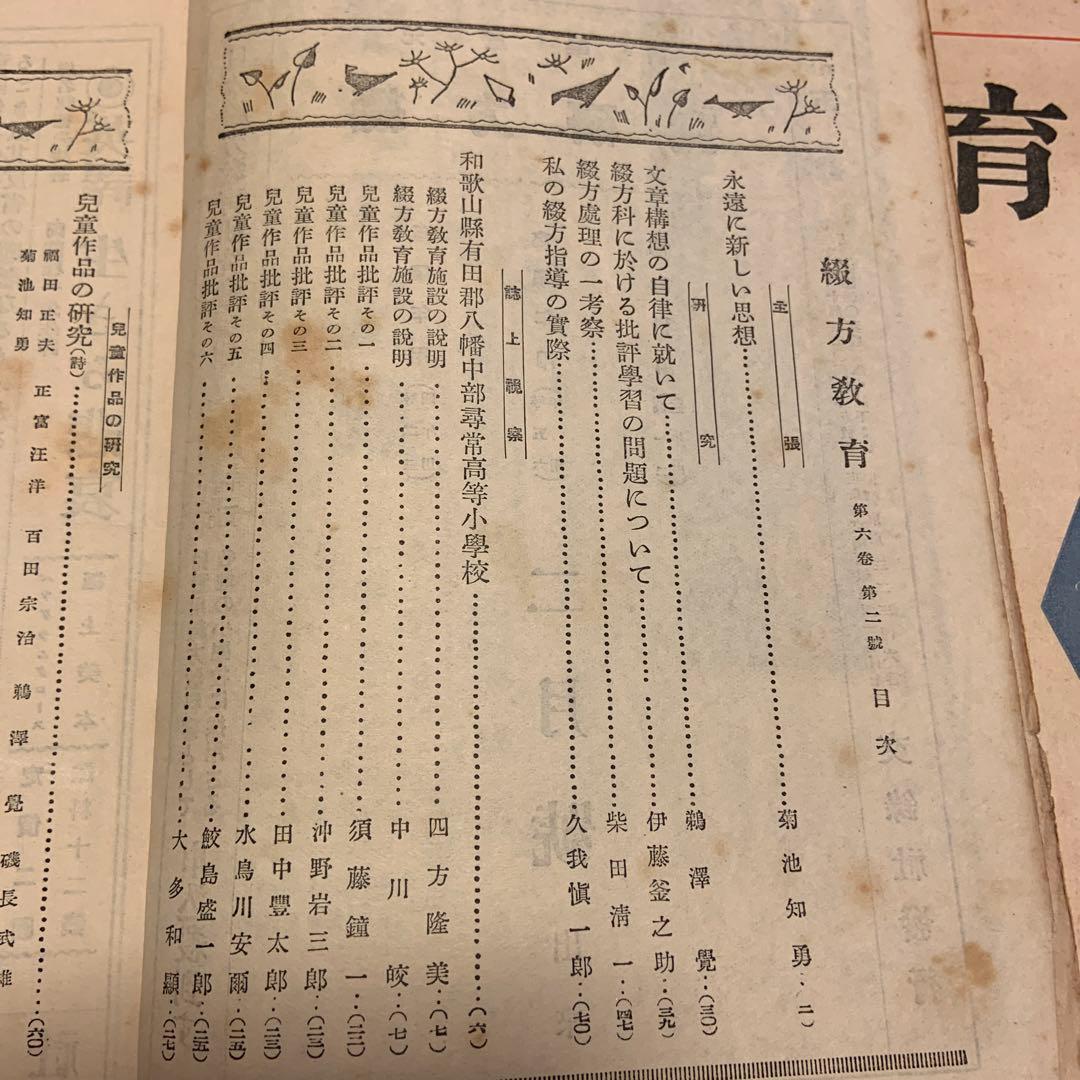 綴方敎育 第六卷 第二號 目次
主張
永遠に新しい思想……菊池知勇…(一)
硏究
文章構想の自律に就いて……鵜澤覺…(三〇)
綴方科に於ける批評學習の問題について……伊藤釜之助…(三九)
綴方處理の一考察……柴田淸一…(四七)
私の綴方指導の實際……久我愼一郎…(七〇)
誌上視察
和歌山縣有田郡八幡中部尋常高等小學校……(六)
綴方敎育施設の說明……四方隆美…(七)
綴方敎育施設の說明……中川皎…(七)
兒童作品批評その一……須藤鐘一…(二二)
兒童作品批評その二……沖野岩三郎…(二三)
兒童作品批評その三……田中豐太郎…(二三)
兒童作品批評その四……水鳥川安爾…(二五)
兒童作品批評その五……鮫島盛一郎…(二五)
兒童作品批評その六……大多和顯…(二七)
兒童作品の硏究
兒童作品の硏究(詩)……(六〇)
福田正夫 正富汪洋 百田宗治 鵜澤覺 磯長武雄
菊池知勇
育